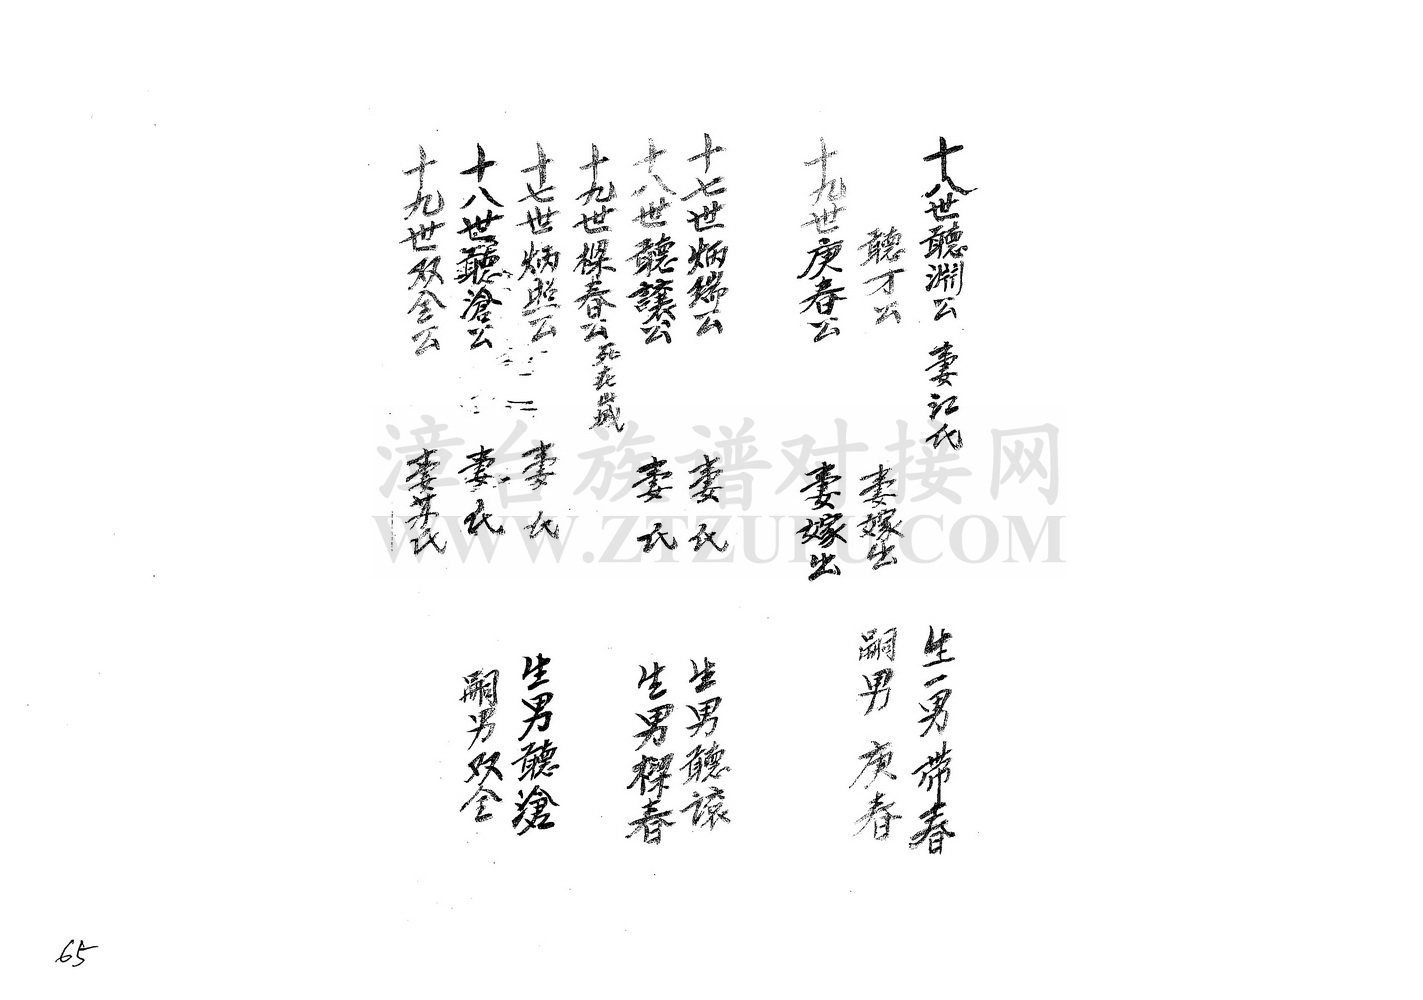 十八世聽淵公 妻江氏 生一男帶春
聽才公 妻嫁出 嗣男庚春
十九世庚春公 妻嫁出
十七世炳瑞公 妻氏 生男聽讓
十八世聽讓公 妻氏 生男樑春
十九世樑春公 死在
十七世炳照公 妻氏 生男聽滄
十八世聽滄公 妻氏 嗣男双全
十九世双全公 妻苏氏
漳台族谱对接网
WWW.ZTZUPU.COM
65